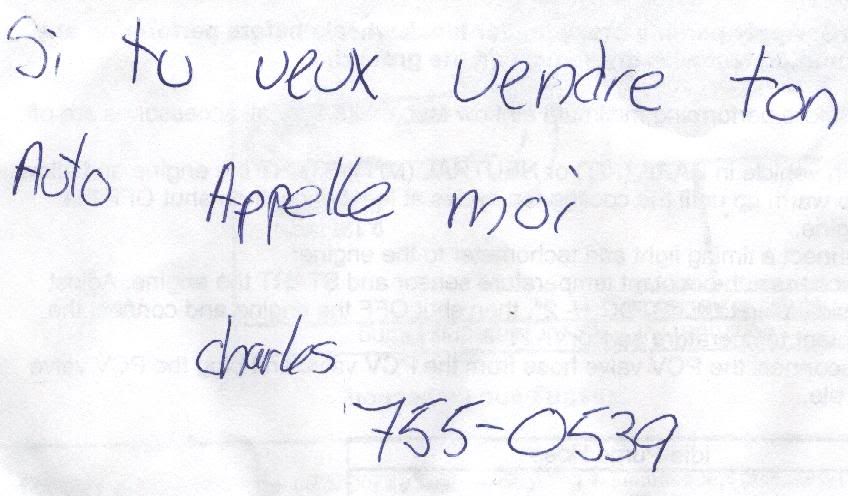 Si tu veux vendre ton
Auto Appelle moi
charles
755-0539